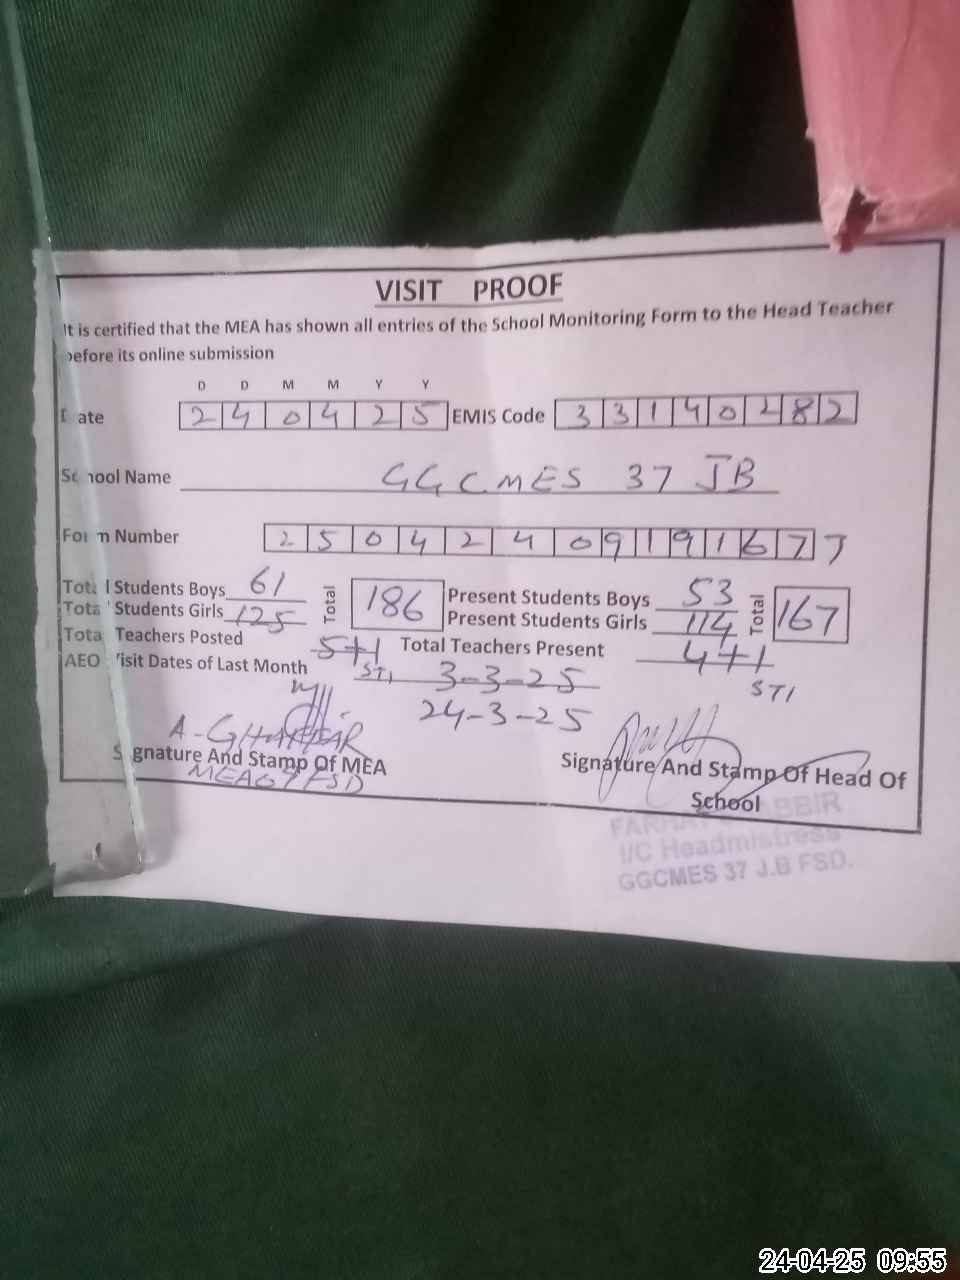 VISIT PROOF
It is certified that the MEA has shown all entries of the School Monitoring Form to the Head Teacher
before its online submission
D D M M Y Y
Date 2 4 0 4 2 5 EMIS Code 3 3 1 4 0 2 8 2
School Name GGCMES 37 JB
Form Number 2 5 0 4 2 4 0 9 1 9 1 6 7 7
Total Students Boys 61 Total 186 Present Students Boys 53 Total 167
Total Students Girls 125 Present Students Girls 114
Total Teachers Posted 5+1 STI Total Teachers Present 4+1 STI
AEO Visit Dates of Last Month 3-3-25
24-3-25
A-GHAFFAR
Signature And Stamp Of MEA
MEA 69 FSD
Signature And Stamp Of Head Of
School
I/C Headmistress
GGCMES 37 J.B FSD.
24-04-25 09:55